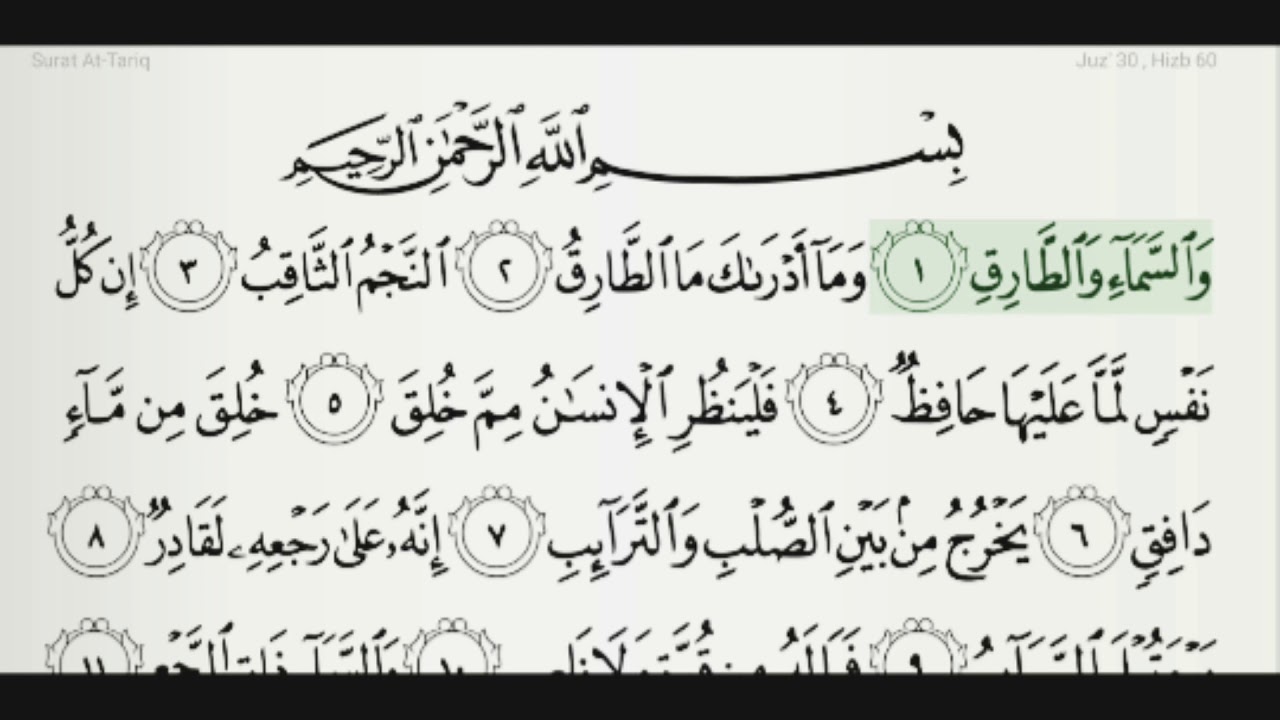 Surat At-Tariq Juz' 30 , Hizb 60
بِسْمِ ٱللَّهِ ٱلرَّحْمَٰنِ ٱلرَّحِيمِ
وَٱلسَّمَآءِ وَٱلطَّارِقِ ١ وَمَآ أَدْرَىٰكَ مَا ٱلطَّارِقُ ٢ ٱلنَّجْمُ ٱلثَّاقِبُ ٣ إِن كُلُّ
نَفْسٍ لَّمَّا عَلَيْهَا حَافِظٌ ٤ فَلْيَنظُرِ ٱلْإِنسَٰنُ مِمَّ خُلِقَ ٥ خُلِقَ مِن مَّآءٍ
دَافِقٍ ٦ يَخْرُجُ مِنۢ بَيْنِ ٱلصُّلْبِ وَٱلتَّرَآئِبِ ٧ إِنَّهُۥ عَلَىٰ رَجْعِهِۦ لَقَادِرٌ ٨